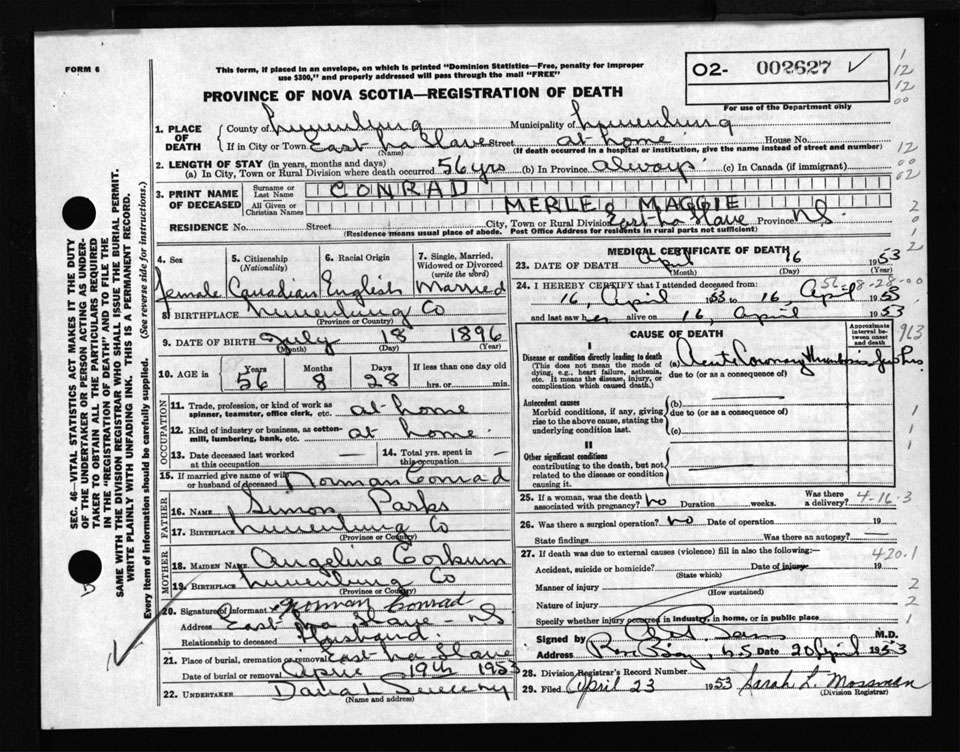 FORM 6
This form, if placed in an envelope, on which is printed "Dominion Statistics—Free, penalty for improper
use $300," and properly addressed will pass through the mail "FREE"
O2- 002627 ✓
For use of the Department only
PROVINCE OF NOVA SCOTIA—REGISTRATION OF DEATH
1. PLACE OF DEATH
County of Lunenburg Municipality of Lunenburg
If in City or Town East La Have Street at home House No.
(Name) (If death occurred in a hospital or institution, give the name instead of street and number)
2. LENGTH OF STAY (in years, months and days)
(a) In City, Town or Rural Division where death occurred 56 yrs (b) In Province always (c) In Canada (if immigrant)
3. PRINT NAME OF DECEASED
Surname or Last Name CONRAD
All Given or Christian Names MERLE MAGGIE
RESIDENCE No. Street City, Town or Rural Division East La Have Province N.S.
(Residence means usual place of abode. Post Office Address for residents in rural parts not sufficient)
4. Sex female
5. Citizenship (Nationality) Canadian
6. Racial Origin English
7. Single, Married, Widowed or Divorced (write the word) Married
8. BIRTHPLACE Lunenburg Co
(Province or County)
9. DATE OF BIRTH July 18 1896
(Month) (Day) (Year)
10. AGE in Years 56 Months 8 Days 28 If less than one day old hrs. or min.
OCCUPATION
11. Trade, profession, or kind of work as spinner, teamster, office clerk, etc. at home
12. Kind of industry or business, as cotton-mill, lumbering, bank, etc. at home
13. Date deceased last worked at this occupation —
14. Total yrs. spent in this occupation —
15. If married give name of wife or husband of deceased Norman Conrad
FATHER
16. NAME Simon Parks
17. BIRTHPLACE Lunenburg Co
(Province or County)
MOTHER
18. MAIDEN NAME Angeline Corkum
19. BIRTHPLACE Lunenburg Co
(Province or County)
20. Signature of informant Norman Conrad
Address East La Have - NS
Relationship to deceased Husband.
21. Place of burial, cremation or removal East La Have
Date of burial or removal April 19th 1953
22. UNDERTAKER
(Name and address)
MEDICAL CERTIFICATE OF DEATH
23. DATE OF DEATH April 16 1953
(Month) (Day) (Year)
56-08-28-00
24. I HEREBY CERTIFY that I attended deceased from:
16, April 1953 to 16, April 1953
and last saw her alive on 16, April 1953
CAUSE OF DEATH
Approximate interval between onset and death
I
Disease or condition directly leading to death
(This does not mean the mode of dying, e.g., heart failure, asthenia, etc. It means the disease, injury, or complication which caused death.)
(a) Acute Coronary Thrombosis
due to (or as a consequence of)
Antecedent causes
Morbid conditions, if any, giving rise to the above cause, stating the underlying condition last.
(b)
due to (or as a consequence of)
(c)
II
Other significant conditions
contributing to the death, but not related to the disease or condition causing it.
25. If a woman, was the death associated with pregnancy? no Duration weeks. Was there a delivery? 4-16-3
26. Was there a surgical operation? no Date of operation 19
State findings Was there an autopsy? —
27. If death was due to external causes (violence) fill in also the following:— 420.1
Accident, suicide or homicide? Date of injury 19
(State which)
Manner of injury
(How sustained)
Nature of injury
Specify whether injury occurred in industry, in home, or in public place
Signed by M.D.
Address N.S Date 20 April 1953
28. Division Registrar's Record Number
29. Filed April 23 1953 Sarah L. Mossman
(Division Registrar)
SEC. 46—VITAL STATISTICS ACT MAKES IT THE DUTY
OF THE UNDERTAKER OR PERSON ACTING AS UNDER-
TAKER TO OBTAIN ALL THE PARTICULARS REQUIRED
IN THE "REGISTRATION OF DEATH" AND TO FILE THE
SAME WITH THE DIVISION REGISTRAR WHO SHALL ISSUE THE BURIAL PERMIT.
WRITE PLAINLY WITH UNFADING INK. THIS IS A PERMANENT RECORD.
Every item of Information should be carefully supplied. (See reverse side for instructions.)